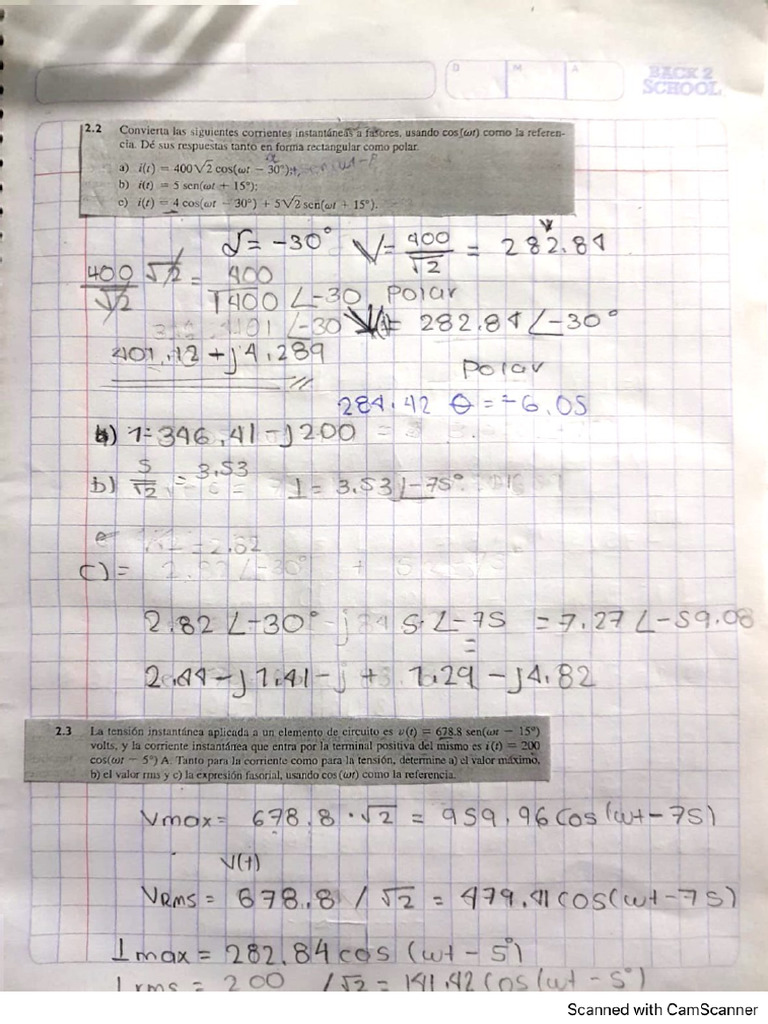 D M A BACK 2
SCHOOL
2.2 Convierta las siguientes corrientes instantáneas a fasores, usando cos(ωt) como la referen-
cia. Dé sus respuestas tanto en forma rectangular como polar.
a) i(t) = 400√2 cos(ωt − 30°);
b) i(t) = 5 sen(ωt + 15°);
c) i(t) = 4 cos(ωt − 30°) + 5√2 sen(ωt + 15°).
δ = -30° V = 400/√2 = 282.84
400/√2 √2 = 400
√400 ∠-30 Polar
∠-30 = 282.84 ∠-30°
401.12 + j4.289
Polar
284.42 θ = -6.05
a) I = 346.41 - j200 =
b) 5/√2 = 3.53 I = 3.53 ∠-75°
= 2.82
c) = 2.82 ∠-30° +
2.82 ∠-30° 5 ∠-75 = 7.27 ∠-59.08
=
2.44 - j1.41 - j + 1.29 - j4.82
2.3 La tensión instantánea aplicada a un elemento de circuito es v(t) = 678.8 sen(ωt − 15°)
volts, y la corriente instantánea que entra por la terminal positiva del mismo es i(t) = 200
cos(ωt − 5°) A. Tanto para la corriente como para la tensión, determine a) el valor máximo,
b) el valor rms y c) la expresión fasorial, usando cos (ωt) como la referencia.
Vmax = 678.8 · √2 = 959.96 cos(wt - 75)
V(t)
VRms = 678.8 / √2 = 479.41 cos(wt - 75)
Imax = 282.84 cos (wt - 5°)
Irms = 200 / √2 = 141.42 cos(wt - 5°)
Scanned with CamScanner